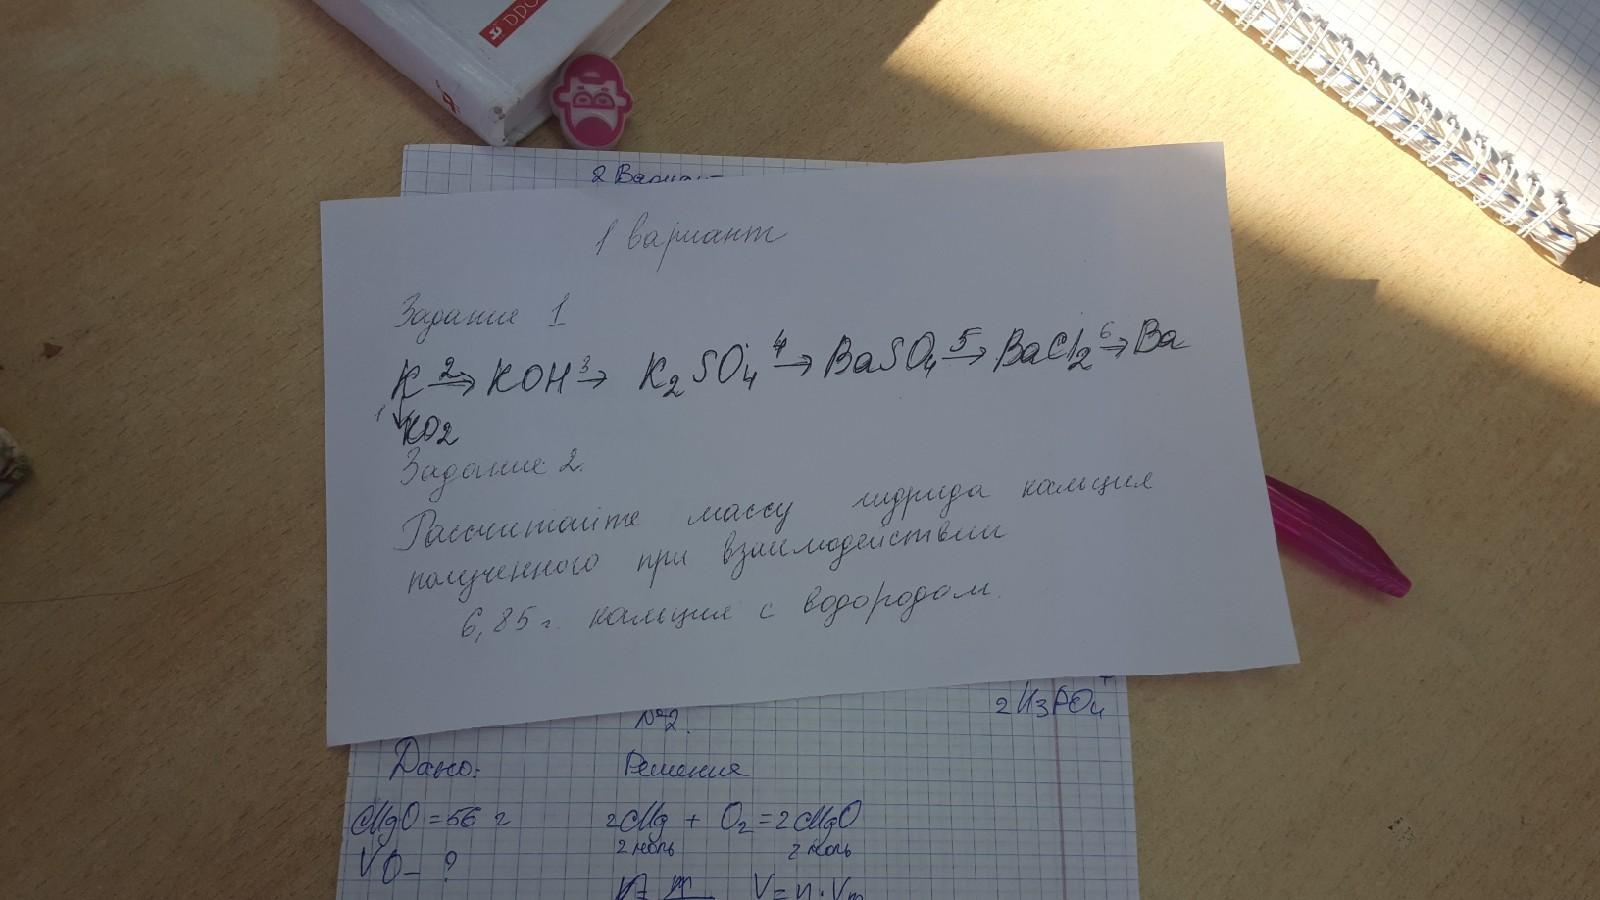 2 Вариант
1 вариант
Задание 1
K 2→ KOH 3→ K2SO4 4→ BaSO4 5→ BaCl2 6→ Ba
1↓
KO2
Задание 2.
Рассчитайте массу гидрида кальция
полученного при взаимодействии
6,85 г. кальция с водородом.
2H3PO4
№2.
Дано: Решение
MgO = 56 г 2Mg + O2 = 2MgO
2 моль 2 моль
VO- ? V= n·Vm